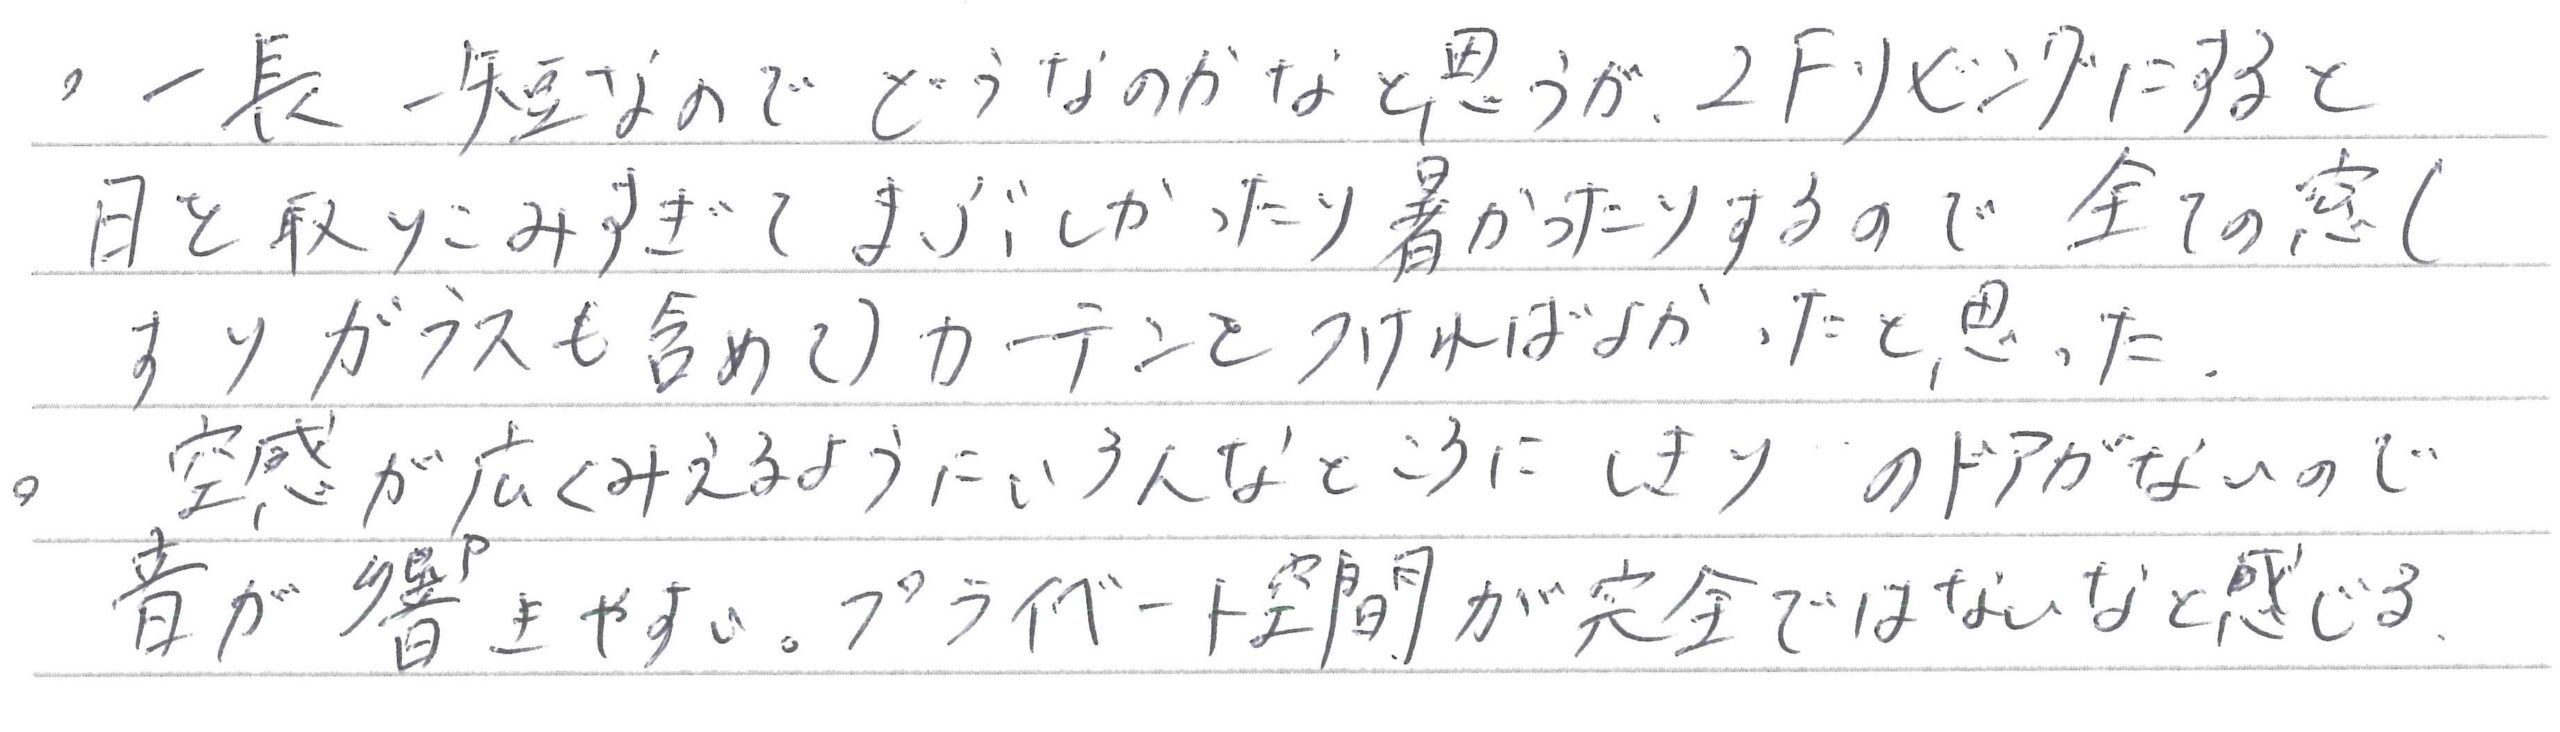 ・一長一短なのでどうなのかなと思うが、2Fリビングにすると
日を取りこみすぎてまぶしかったり暑かったりするので全ての窓(
すりガラスも含めて)カーテンをつければよかったと思った.
。空感が広くみえるようにいろんなところにしきりのドアがないので
音が響きやすい。プライベート空間が完全ではないなと感じる.